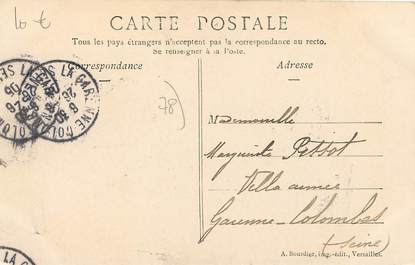 10 €
CARTE POSTALE
Tous les pays étrangers n'acceptent pas la correspondance au recto.
Se renseigner à la Poste.
Correspondance
Adresse
LA GARENNE COLOMBES
78
Mademoiselle
Marguerite Petsot
Villa aimée
Garenne-Colombes
(Seine)
A. Bourdier, img.-édit., Versailles.
LA G